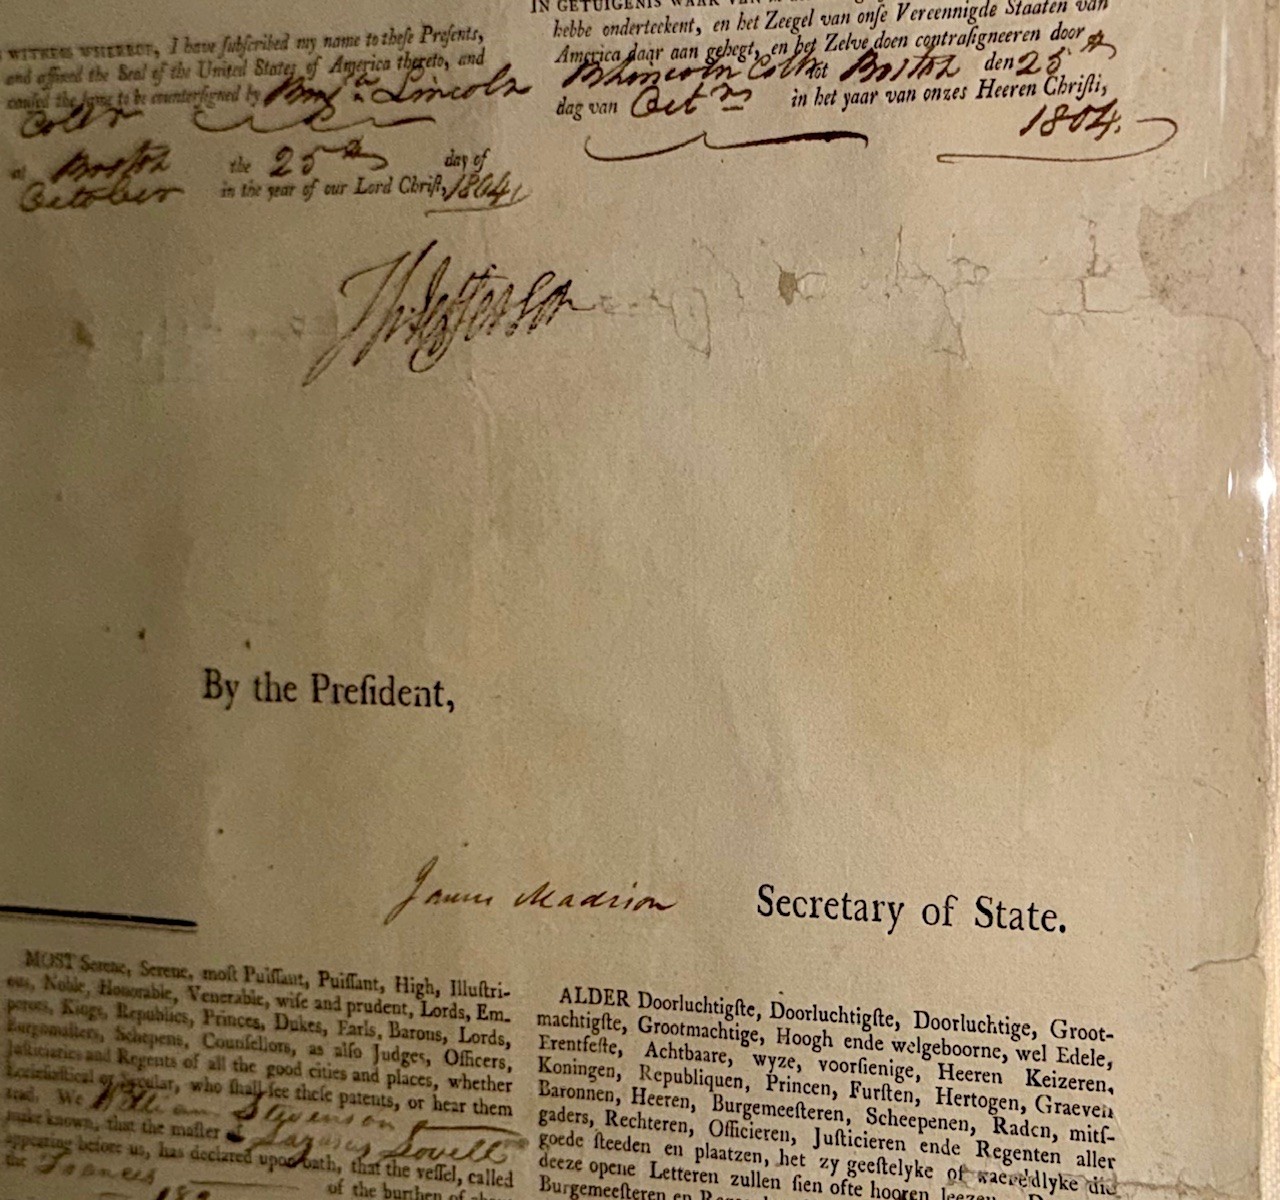 WITNESS WHEREOF, I have ſubſcribed my name to theſe Preſents,
and affixed the Seal of the United States of America thereto, and
cauſed the ſame to be counterſigned by Benjn Lincoln
Collr
at Boston the 25th day of
October in the year of our Lord Chriſt, 1804
IN GETUIGENIS WAAR VAN
hebbe onderteekent, en het Zeegel van onſe Vereennigde Staaten van
America daar aan gehegt, en het Zelve doen contraſigneeren door
B Lincoln Collr tot Boston den 25th
dag van Octr in het yaar van onzes Heeren Chriſti,
1804.
Th Jefferson
By the Preſident,
James Madison Secretary of State.
MOST Serene, Serene, moſt Puiſſant, Puiſſant, High, Illuſtri-
ous, Noble, Honorable, Venerable, wiſe and prudent, Lords, Em-
perors, Kings, Republics, Princes, Dukes, Earls, Barons, Lords,
Burgomaſters, Schepens, Counſellors, as alſo Judges, Officers,
Juſticiaries and Regents of all the good cities and places, whether
Eccleſiaſtical or ſecular, who ſhall ſee theſe patents, or hear them
read. We William Stevenson
make known, that the maſter of Lazarus Lovell
appearing before us, has declared upon oath, that the veſſel, called
the Frances
of the burthen of
ALDER Doorluchtigſte, Doorluchtigſte, Doorluchtige, Groot-
machtigſte, Grootmachtige, Hoogh ende welgeboorne, wel Edele,
Erentfeſte, Achtbaare, wyze, voorſienige, Heeren Keizeren,
Koningen, Republiquen, Princen, Furſten, Hertogen, Graeven
Baronnen, Heeren, Burgemeeſteren, Scheepenen, Raden, mitſ-
gaders, Rechteren, Officieren, Juſticieren ende Regenten aller
goede ſteeden en plaatzen, het zy geeſtelyke of waereldlyke die
deeze opene Letteren zullen ſien ofte hooren leezen
Burgemeeſteren en